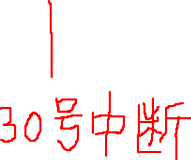 30号中断